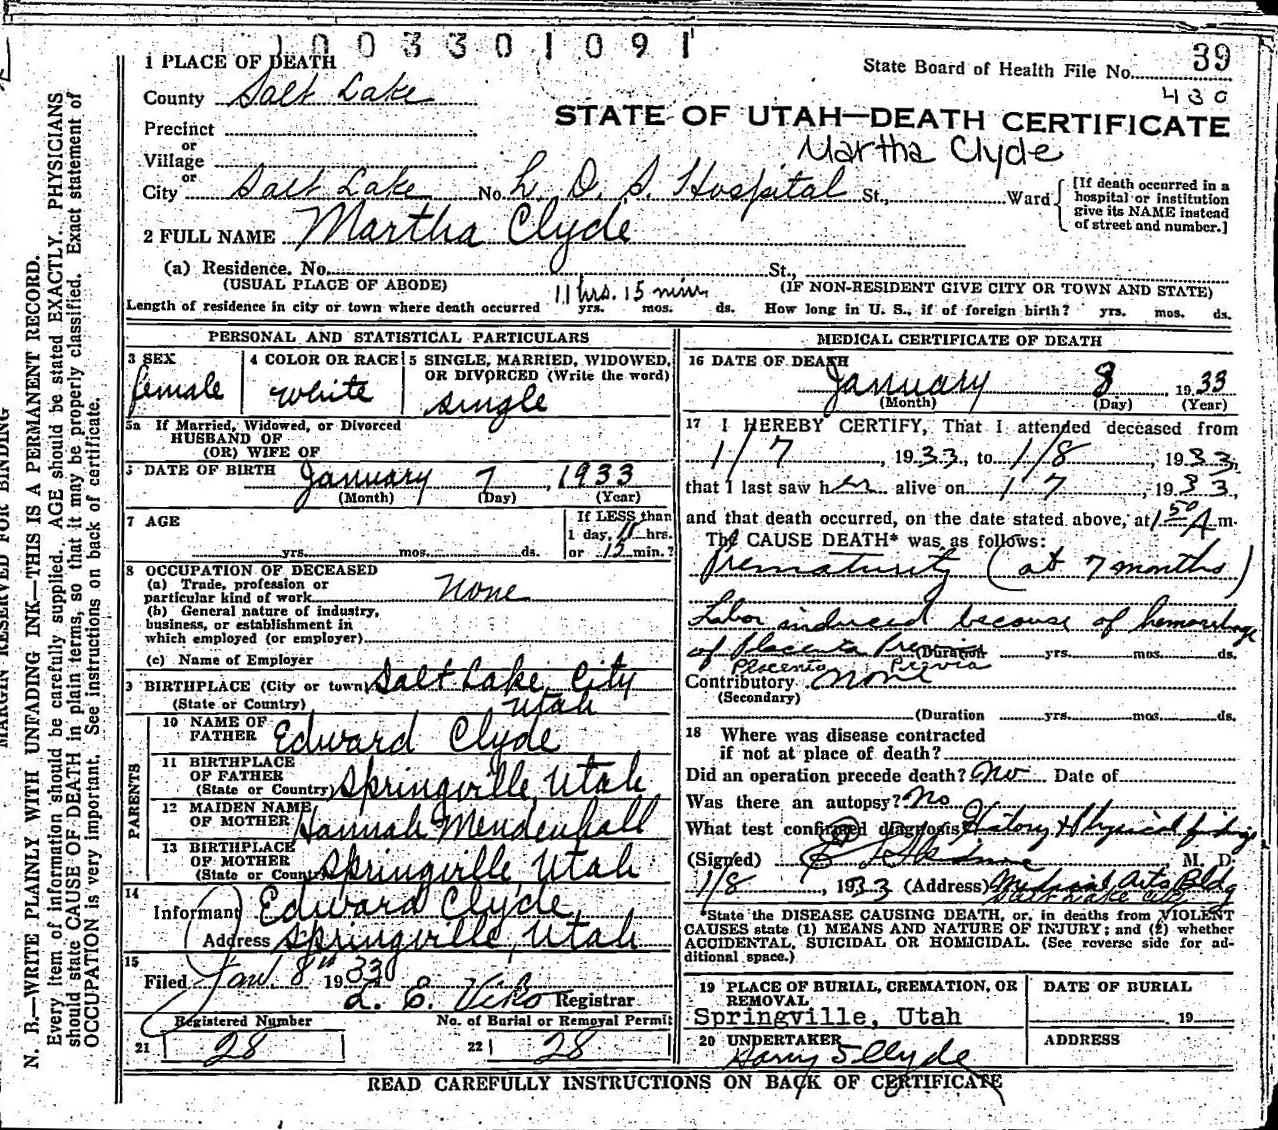 1003301091
1 PLACE OF DEATH
State Board of Health File No. 39
430
County Salt Lake
STATE OF UTAH—DEATH CERTIFICATE
Martha Clyde
Precinct
or
Village
or
City Salt Lake No. L. D. S. Hospital St., Ward
[If death occurred in a hospital or institution give its NAME instead of street and number.]
2 FULL NAME Martha Clyde
(a) Residence. No. St.,
(USUAL PLACE OF ABODE) (IF NON-RESIDENT GIVE CITY OR TOWN AND STATE)
11 hrs. 15 min.
Length of residence in city or town where death occurred yrs. mos. ds. How long in U. S., if of foreign birth? yrs. mos. ds.
PERSONAL AND STATISTICAL PARTICULARS
3 SEX
female
4 COLOR OR RACE
White
5 SINGLE, MARRIED, WIDOWED,
OR DIVORCED (Write the word)
single
5a If Married, Widowed, or Divorced
HUSBAND OF
(OR) WIFE OF
DATE OF BIRTH January 7, 1933
(Month) (Day) (Year)
7 AGE
yrs. mos. ds.
If LESS than
1 day, 11 hrs.
or 15 min.?
8 OCCUPATION OF DECEASED
(a) Trade, profession or
particular kind of work None
(b) General nature of industry,
business, or establishment in
which employed (or employer)
(c) Name of Employer
9 BIRTHPLACE (City or town) Salt Lake City
(State or Country) Utah
PARENTS
10 NAME OF
FATHER Edward Clyde
11 BIRTHPLACE
OF FATHER
(State or Country) Springville, Utah
12 MAIDEN NAME
OF MOTHER Hannah Mendenhall
13 BIRTHPLACE
OF MOTHER
(State or Country) Springville, Utah
14
Informant Edward Clyde
Address Springville, Utah
15
Filed Jan. 8th 1933
L. E. Viko Registrar
Registered Number No. of Burial or Removal Permit
21 28 22 28
MEDICAL CERTIFICATE OF DEATH
16 DATE OF DEATH
January 8, 1933
(Month) (Day) (Year)
17 I HEREBY CERTIFY, That I attended deceased from
1/7, 1933, to 1/8, 1933,
that I last saw her alive on 1 7, 1933,
and that death occurred, on the date stated above, at 1 50 A m.
The CAUSE DEATH* was as follows:
Prematurity (at 7 months)
Labor induced because of hemorrhage
of Placenta Previa (Duration yrs. mos. ds.
Placenta Previa
Contributory None
(Secondary)
(Duration yrs. mos. ds.
18 Where was disease contracted
if not at place of death?
Did an operation precede death? No Date of
Was there an autopsy? No
What test confirmed diagnosis? History & Physical findings
(Signed) M. D.
1/8, 1933 (Address) Medical Arts Bldg
Salt Lake City
*State the DISEASE CAUSING DEATH, or, in deaths from VIOLENT
CAUSES state (1) MEANS AND NATURE OF INJURY; and (2) whether
ACCIDENTAL, SUICIDAL OR HOMICIDAL. (See reverse side for ad-
ditional space.)
19 PLACE OF BURIAL, CREMATION, OR
REMOVAL
Springville, Utah
DATE OF BURIAL
19
20 UNDERTAKER
Harry S Clyde
ADDRESS
READ CAREFULLY INSTRUCTIONS ON BACK OF CERTIFICATE
MARGIN RESERVED FOR BINDING
N. B.—WRITE PLAINLY WITH UNFADING INK—THIS IS A PERMANENT RECORD.
Every item of information should be carefully supplied. AGE should be stated EXACTLY. PHYSICIANS
should state CAUSE OF DEATH in plain terms, so that it may be properly classified. Exact statement of
OCCUPATION is very important. See instructions on back of certificate.